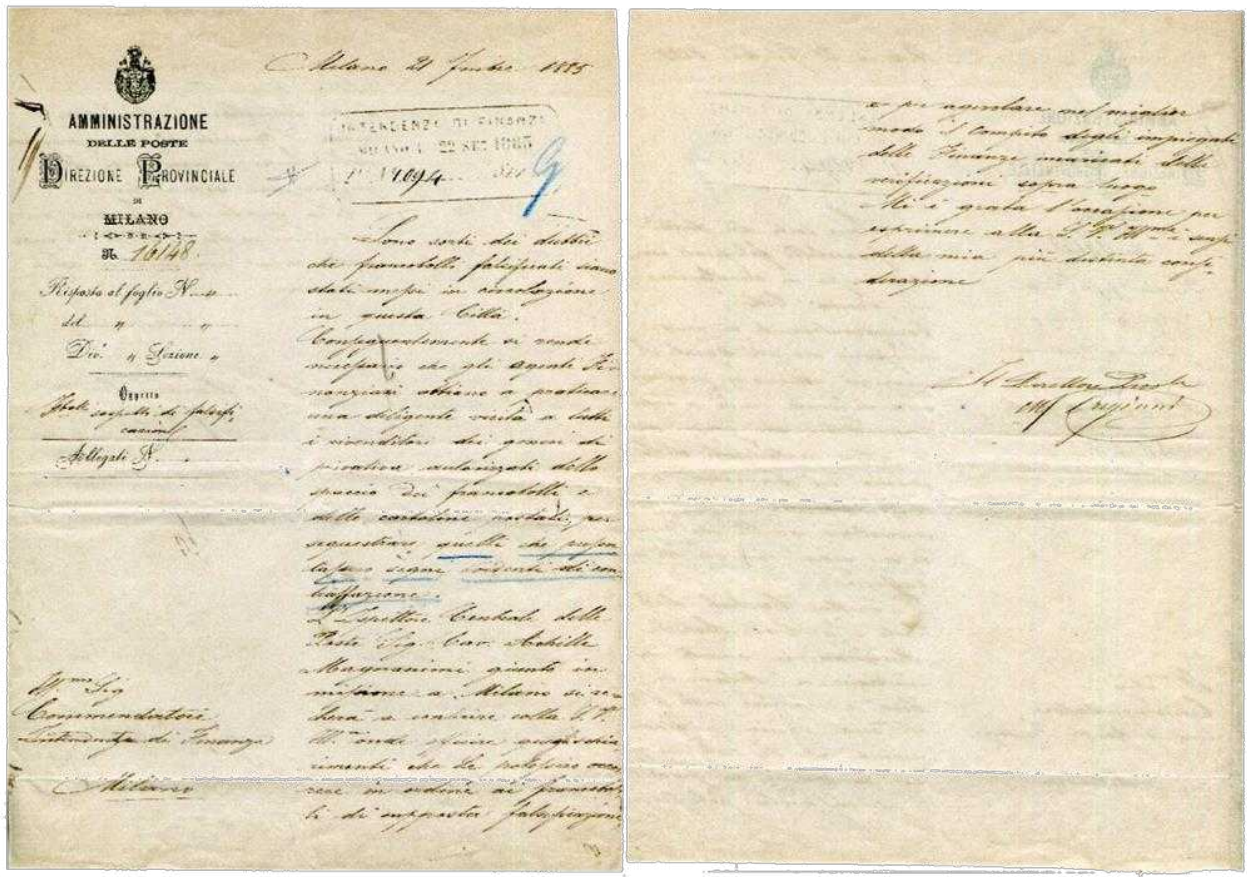 Milano 21 7mbre 1885
AMMINISTRAZIONE
DELLE POSTE
DIREZIONE PROVINCIALE
DI
MILANO
N. 16148.
Risposta al foglio N.
del
Div. Sezione
Oggetto
sospetti di falsifi
cazioni
Allegati N.
INTENDENZA DI FINANZA
MILANO 22 SET 1885
14094
Sono sorti dei dubbi
che francobolli falsificati siano
stati messi in circolazione
in questa Città.
Conseguentemente si rende
necessario che gli agenti Fi
nanziari abbiano a praticare
una diligente visita a tutti
i rivenditori dei generi di
privativa autorizzati dello
spaccio dei francobolli e
delle cartoline postali, per
sequestrare quelli che presen
tassero segni di con
traffazione.
L'Ispettore Centrale delle
Poste Sig. Cav. Achille
Magnanimi giunto in
missione a Milano si re
cherà a conferire colla S.V.
Ill.ma onde quei schia
rimenti che Le potessero occor
rere in ordine ai francobol
li di supposta falsificazione
Ill.mo Sig
Commendatore
Intendente di Finanza
Milano
e per agevolare nel miglior
modo il compito degli impiegati
delle Finanze incaricati delle
verificazioni sopra luogo.
Mi è grata l'occasione per
esprimere alla S.V. Ill.ma i sensi
della mia più distinta consi-
derazione
Il Direttore Prov.le